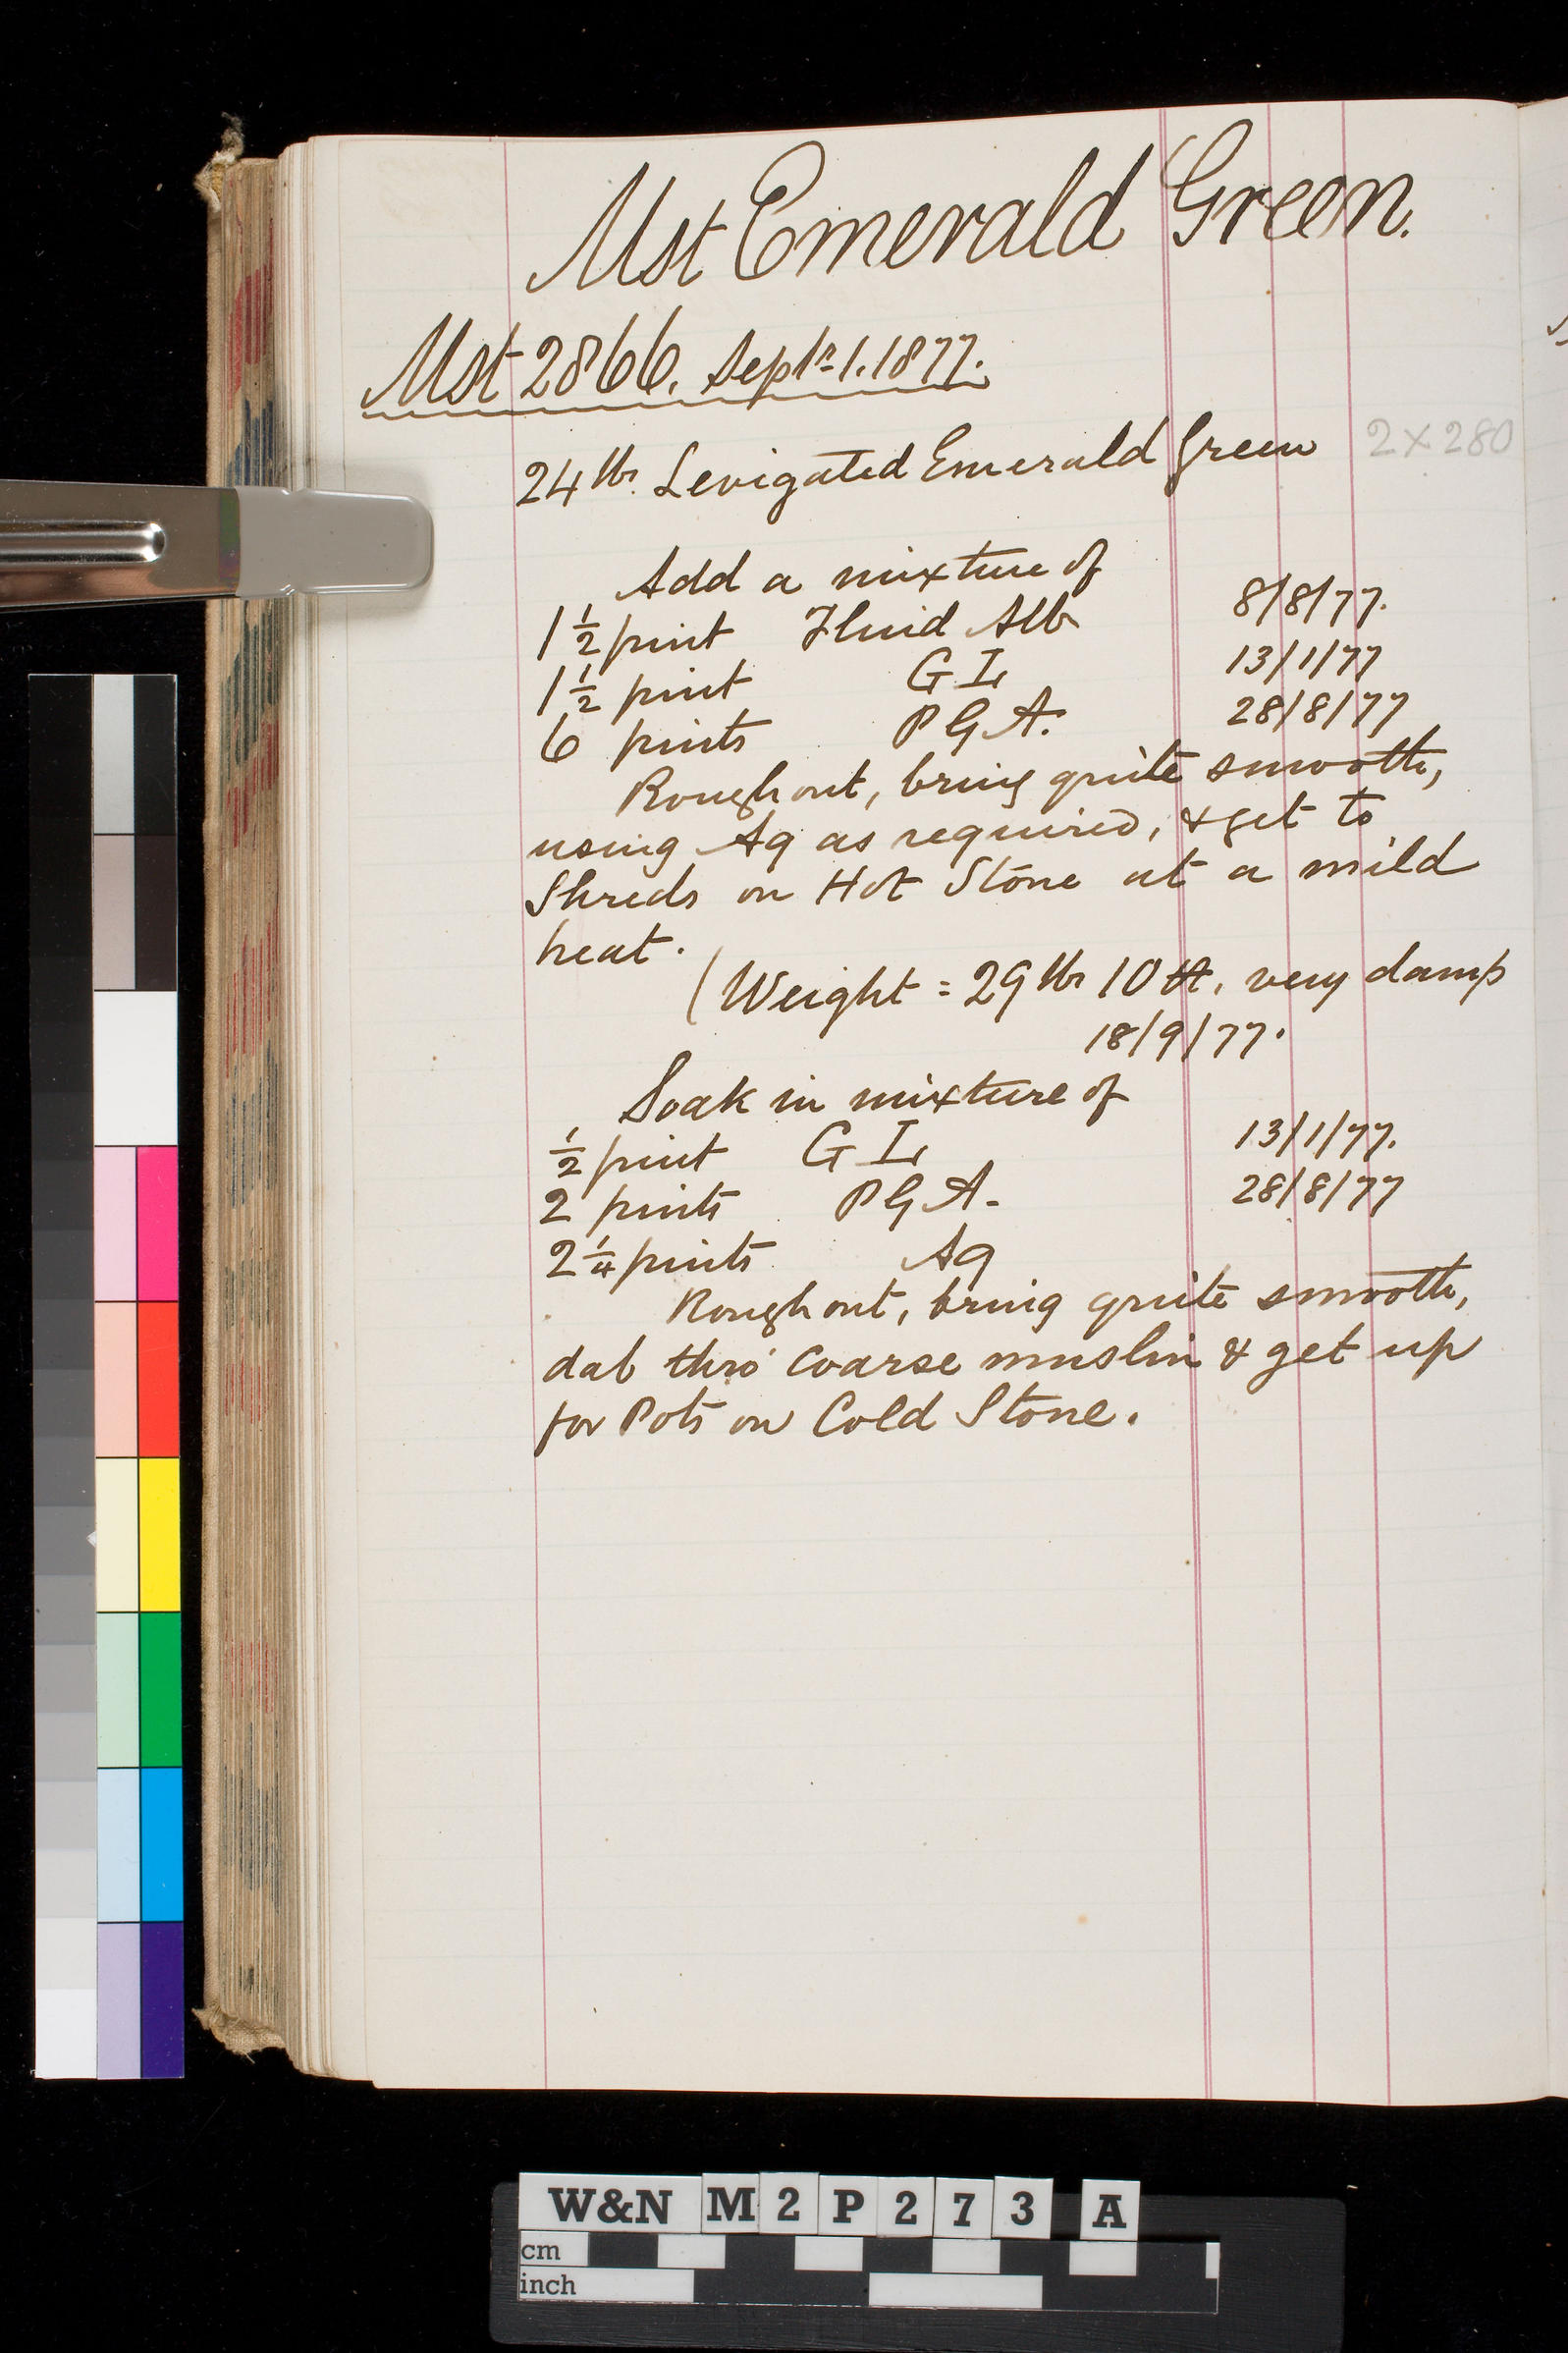 Mst Emerald Green.
Mst 2866. Septr. 1. 1877.
24 lbs. Levigated Emerald Green 2 x 280
Add a mixture of
1 1/2 pint Fluid Alb 8/8/77.
1 1/2 pint G I, 13/1/77
6 pints P G A. 28/8/77
Rough out, bring quite smooth,
using Aq as required, & get to
Shreds on Hot Stone at a mild
heat.
(Weight = 29 lbs 10 , very damp
18/9/77.
Soak in mixture of
1/2 pint G I, 13/1/77.
2 pints P G A. 28/8/77
2 1/4 pints Aq
Rough out, bring quite smooth,
dab thro' Coarse muslin & get up
for Pots on Cold Stone.
W&N M2P273 A
cm
inch